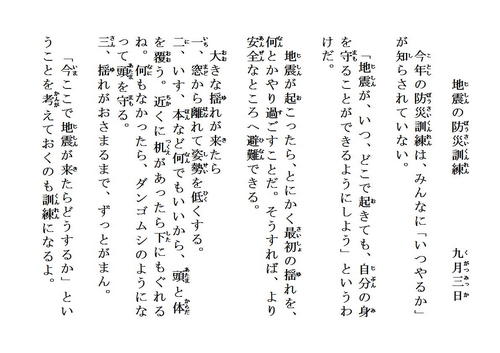 地震の防災訓練　九月三日
今年の防災訓練は、みんなに「いつやるか」
が知らされていない。
「地震が、いつ、どこで起きても、自分の身
を守ることができるようにしよう」というわ
けだ。
地震が起こったら、とにかく最初の揺れを、
何とかやり過ごすことだ。そうすれば、より
安全なところへ避難できる。
大きな揺れが来たら
一、窓から離れて姿勢を低くする。
二、いす、本など何でもいいから、頭と体
を覆う。近くに机があったら下にもぐれる
ね。何もなかったら、ダンゴムシのようにな
って頭を守る。
三、揺れがおさまるまで、ずっとがまん。
「今ここで地震が来たらどうするか」とい
うことを考えておくのも訓練になるよ。